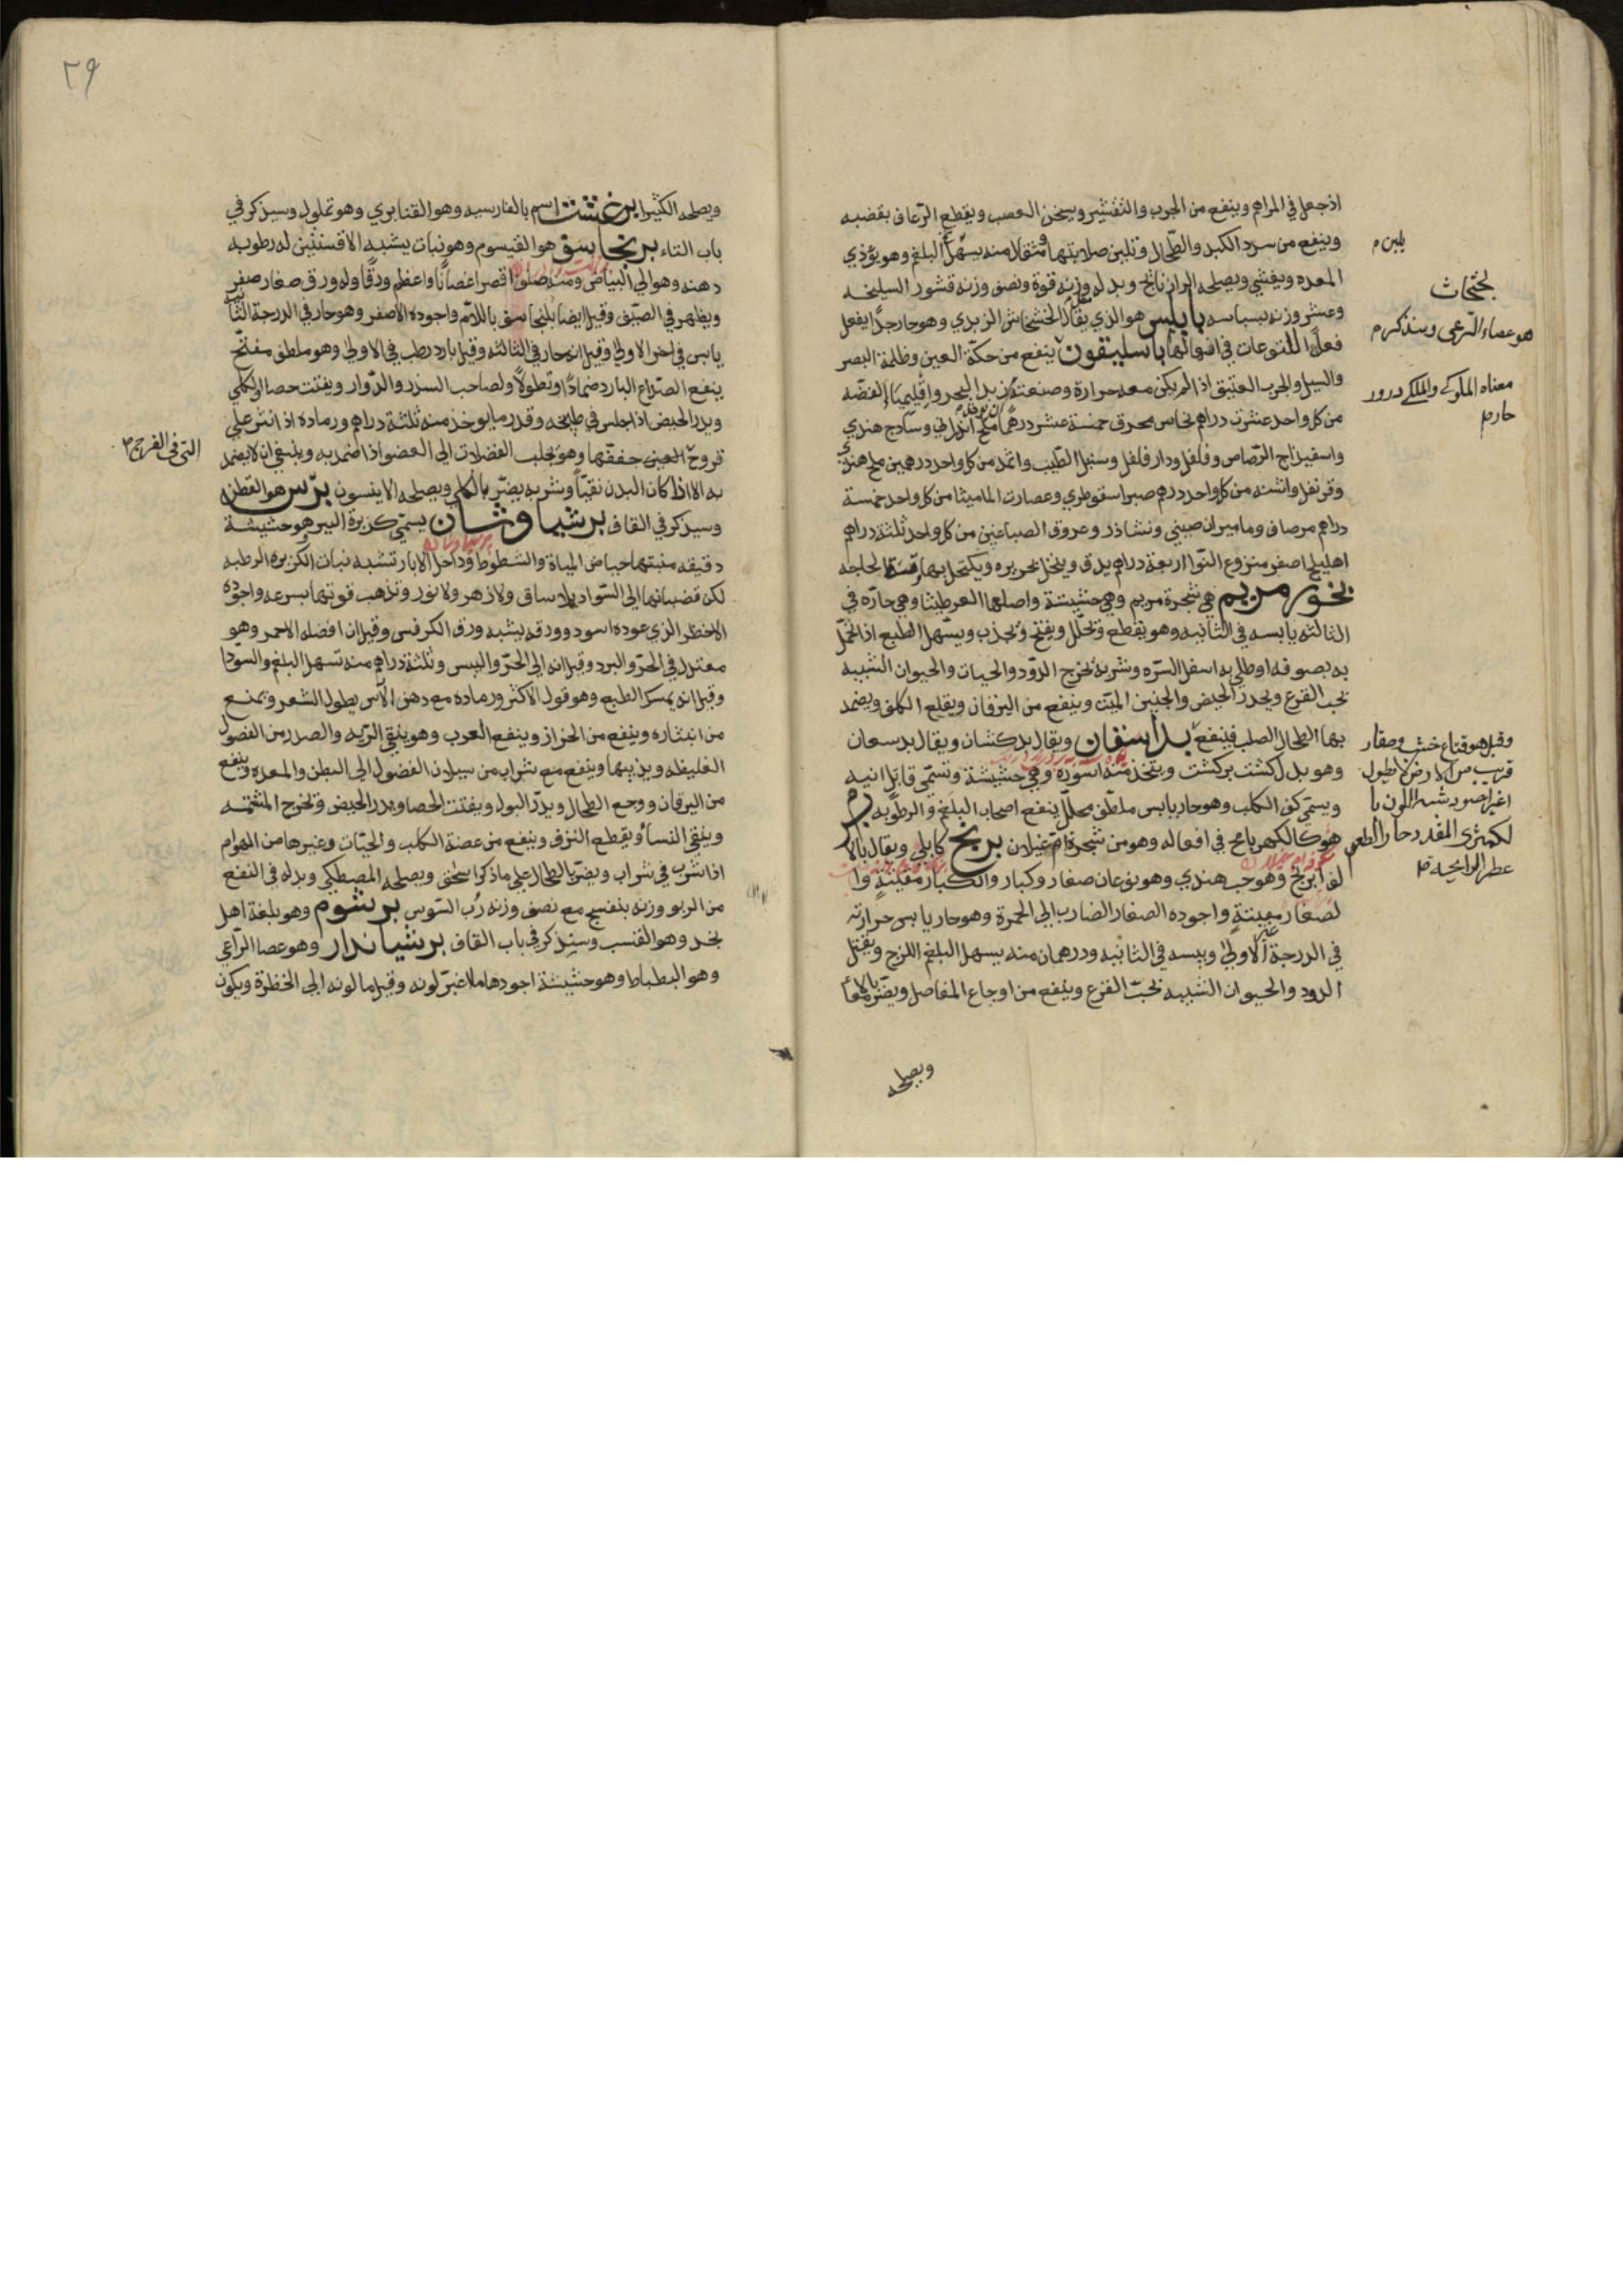 اذ جعل في المراهم وينفع من الجرب والتقشير ويسخن العصب ويقطع الرعاف بقضبه
وينفع من سدد الكبد والطحال وتلين صلابتهما ومثقال منه يسهل البلغم وهو يؤذي
المعده ويغشي ويصلحه الرازيانج وبدله وزنه قوة ونصف وزنه قشور السليخه
وعشر وزنه بسباسه بابلس هو الذي يقال الخشخاش الزبدي وهو حار جدا يفعل
فعل المتوعات في افعالها باسليقون ينفع من حكة العين وظلمة البصر
والسبل والجرب العتيق اذا لم يكن معه حرارة وصنعته زبد البحر واقليميا الفضه
من كل واحد عشرت دراهم نحاس محرق خمسة عشر درهما ملح اندراني وسادج هندي
واسفيذاج الرصاص وفلفل ودارفلفل وسنبل الطيب واثمد من كل واحد درهمين ملح هندي
وقرنفل واشنه من كل واحد درهم صبر اسقوطري وعصارت الماميثا من كل واحد خمسة
دراهم مر صافي وماميران صيني ونشاذر وعروق الصباغين من كل واحد ثلثة دراهم
اهليلج اصفر منزوع النوا اربعة دراهم يدق وينخل بحريره ويكتحل بها وقت الحاجه
بخور مريم هي شجرة مريم وهي حشيشة واصلها العرطنيثا وهي حاره في
الثالثه يابسه في الثانيه وهو يقطع وتحلل ويفتح ويجذب ويسهل الطبع اذا تحمل
به بصوفه او طلي به اسفل السره وشربه تخرج الدود والحيات والحيوان الشبيه
بحب القرع ويحدر الحيض والجنين الميت وينفع من اليرقان ويقلع الكلف ويضمد
بها الطحال الصلب فينفع بداسفان ويقال بدكشان ويقال بدسعان
وهو بدلكشت بركشت ويتخذ منه اسوره وهي حشيشة وتسمى قاتل ابيه
ويسمى كف الكلب وهو حار يابس ملطف محلل ينفع اصحاب البلغم والرطوبه برم
هو كالكهربا مح في افعاله وهو من شجرة ام غيلان برنج كابلي ويقال بالا
لف ابرنج وهو حب هندي وهو نوعان صغار وكبار والكبار مغينة وا
لصغار مغينة واجوده الصغار الضارب الى الحمرة وهو حار يابس حرارته
في الدرجة الاولى ويبسه في الثانيه ودرهمان منه يسهل البلغم اللزج ويقتل
الدود والحيوان الشبيه بحب القرع وينفع من اوجاع المفاصل ويضر بالامعا
ويصلحه
يلين م
بختجات
هو عصاء الرعي وسنذكره م
معناه الملوكي والملكي درور
حار م
وقيل هو قناع خشب وصغار
قريب من الارض لا يطول
اغبر اصود شبه اللون با
لكمثرى المقدد حار الطعم
عطر الرايحه م
٢٩
ويصلحه الكثيرا برغشت اسم بالفارسيه وهو القنابري وهو تملول وسيذكر في
باب التاء برنجاسف هو القيسوم وهو نبات يشبه الافسنتين له رطوبه
دهنه وهو الى البياض ومنه صنف اقصر اغصانا واعظم ورقا وله ورق صغار صفر
ويظهر في الصيف وقيل ايضا بلنجاسف باللام واجوده الاصفر وهو حار في الدرجة الثانيه
يابس في اخر الاولى وقيل انه حار في الثالثه وقيل بارد رطب في الاولى وهو ملطف مفتح
ينفع الصداع البارد ضمادا ونطولا ولصاحب السدد والدوار ويفتت حصا الكلى
ويدر الحيض اذا جلس في طبيخه وقدر ما يوخذ منه ثلثة دراهم ورماده اذا نثر على
قروح العين جففها وهو يجلب الفضلات الى العضو اذا ضمد به وينبغي ان لا يضمد
به الا اذا كان البدن نقيا وشربه يضر بالكلى ويصلحه الانيسون برس هو القطن
وسيذكر في القاف برشياوشان يسمى كزبرة البير هو حشيشة
دقيقه منبتها حياض المياه والشطوط وداخل الابار تشبه نبات الكزبره الرطبه
لكن قضبانها الى السواد بلا ساق ولا زهر ولا نور وتذهب قوتها بسرعه واجوده
الاخظر الذي عوده اسود وورقه يشبه ورق الكرفس وقيل ان افضله الاحمر وهو
معتدل في الحر والبرد وقيل انه الى الحر واليبس وثلثة دراهم منه تسهل البلغم والسودا
وقيل انه يمسك الطبع وهو قول الاكثر ورماده مع دهن الآس يطول الشعر ويمنع
من انتثاره وينفع من الحزاز وينفع العرب وهو ينقي الريه والصدر من الفضول
الغليظه ويذيبها وينفع مع شراب من سيلان الفضول الى البطن والمعده وينفع
من اليرقان ووجع الطحال ويدر البول ويفتت الحصا ويدر الحيض وتخرج المشيمه
وينقي النفسا ويقطع النزف وينفع من عضة الكلب والحيات وغيرها من الهوام
اذا شرب في شراب ويضر بالطحال على ما ذكر اسحق ويصلحه المصطكي وبدله في النفع
من الربو وزنه بنفسج مع نصف وزنه رب السوس برشوم وهو بلغة اهل
نجد وهو القنسب وسيذكر في باب القاف برشياندار وهو عصا الراعي
وهو البطباط وهو حشيشة اجودها ما اغبر لونه وقيل ما لونه الى الخظرة ويكون
التي في الفرج م